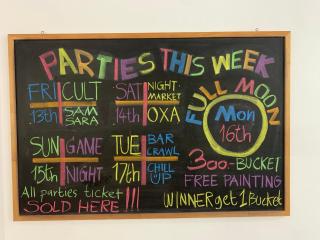 PARTIES THIS WEEK
FRI CULT
13th SAM SARA
SAT NIGHT MARKET
14th OXA
SUN GAME
15th NIGHT
TUE BAR CRAWL
17th CHILL UP
FULL MOON
Mon
16th
300.-BUCKET
FREE PAINTING
WINNER get 1 Bucket
All parties ticket
SOLD HERE !!!